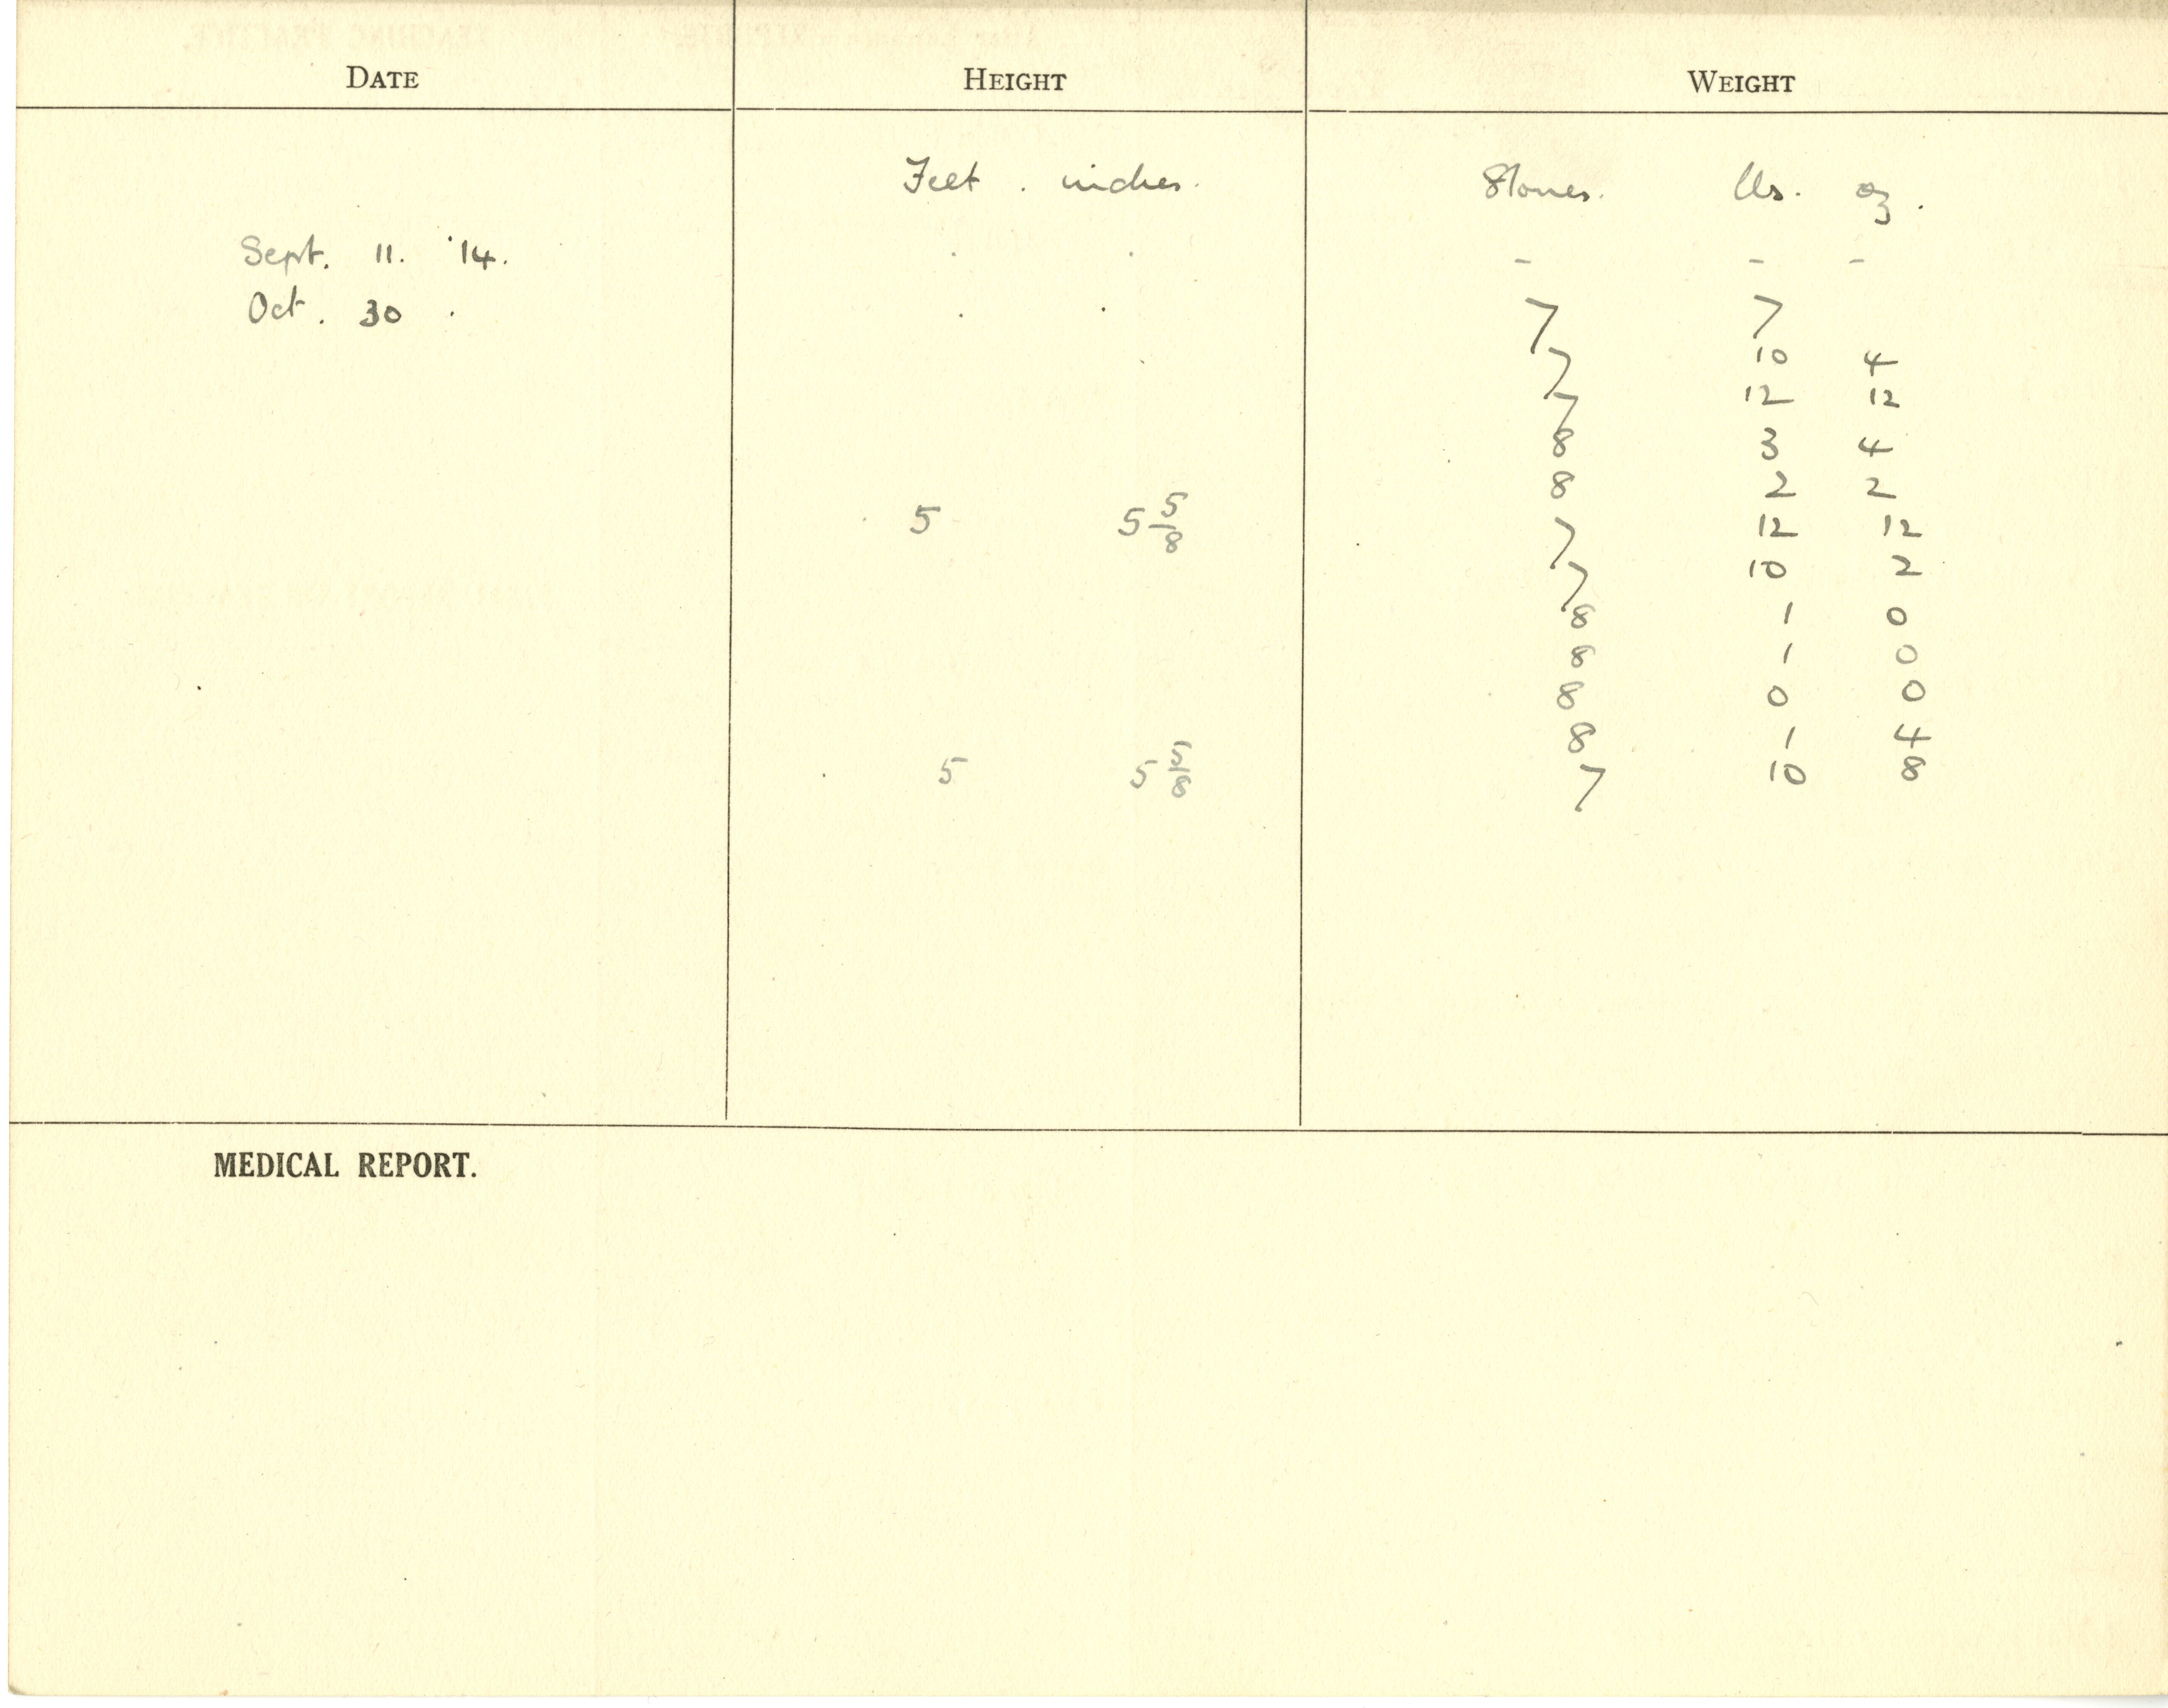 DATE HEIGHT WEIGHT
Feet . inches. Stones. lbs. oz.
Sept. 11. '14. - - -
Oct. 30 7 7
7 10 4
7 12 12
8 3 4
8 2 2
5 5 5/8 7 12 12
7 10 2
8 1 0
8 1 0
8 0 0
8 1 4
5 5 5/8 7 10 8
MEDICAL REPORT.